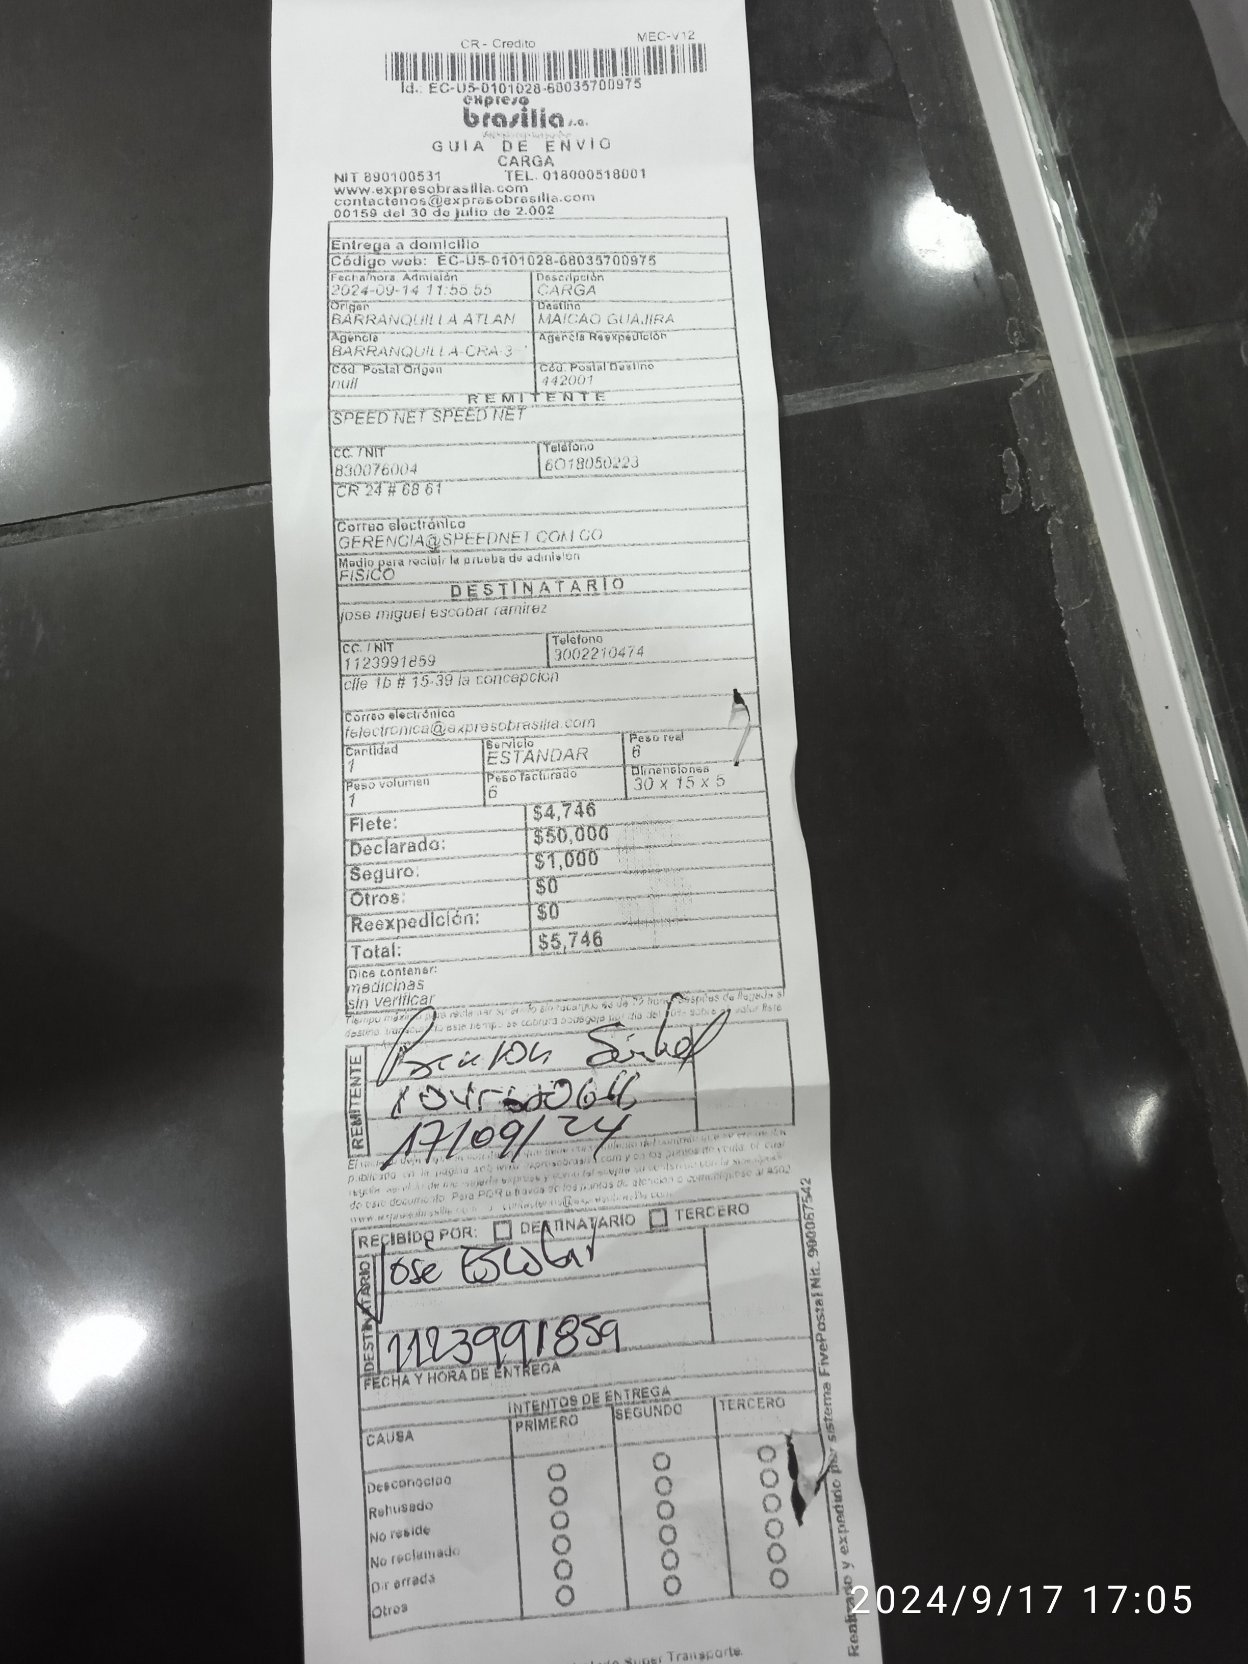 CR - Credito MEC-V12
Id.: EC-U5-0101028-68035700975
expreso
brasilia s.a.
GUIA DE ENVIO
CARGA
NIT 890100531 TEL. 018000518001
www.expresobrasilia.com
contactenos@expresobrasilia.com
00159 del 30 de julio de 2.002
Entrega a domicilio
Código web: EC-U5-0101028-68035700975
Fecha/hora Admisión Descripción
2024-09-14 11:55:55 CARGA
Origen Destino
BARRANQUILLA ATLAN MAICAO GUAJIRA
Agencia Agencia Reexpedición
BARRANQUILLA-CRA-3
Cód. Postal Origen Cód. Postal Destino
null 442001
REMITENTE
SPEED NET SPEED NET
CC. / NIT Teléfono
830076004 6018050223
CR 24 # 68 61
Correo electrónico
GERENCIA@SPEEDNET.COM.CO
Medio para recibir la prueba de admisión
FISICO
DESTINATARIO
jose miguel escobar ramirez
CC. / NIT Teléfono
1123991859 3002210474
clle 1b # 15-39 la concepcion
Correo electrónico
felectronica@expresobrasilia.com
Cantidad Servicio Peso real
1 ESTANDAR 6
Peso volumen Peso facturado Dimensiones
1 6 30 x 15 x 5
Flete: $4,746
Declarado: $50,000
Seguro: $1,000
Otros: $0
Reexpedición: $0
Total: $5,746
Dice contener:
medicinas
sin verificar
REMITENTE
17/09/24
RECIBIDO POR: DESTINATARIO TERCERO
DESTINATARIO
José Escobar
1123991859
FECHA Y HORA DE ENTREGA
INTENTOS DE ENTREGA
CAUSA PRIMERO SEGUNDO TERCERO
Desconocido
Rehusado
No reside
No reclamado
Dir errada
Otros
Realizado y expedido por sistema FivePostal Nit. 900087542
Super Transporte.
2024/9/17 17:05